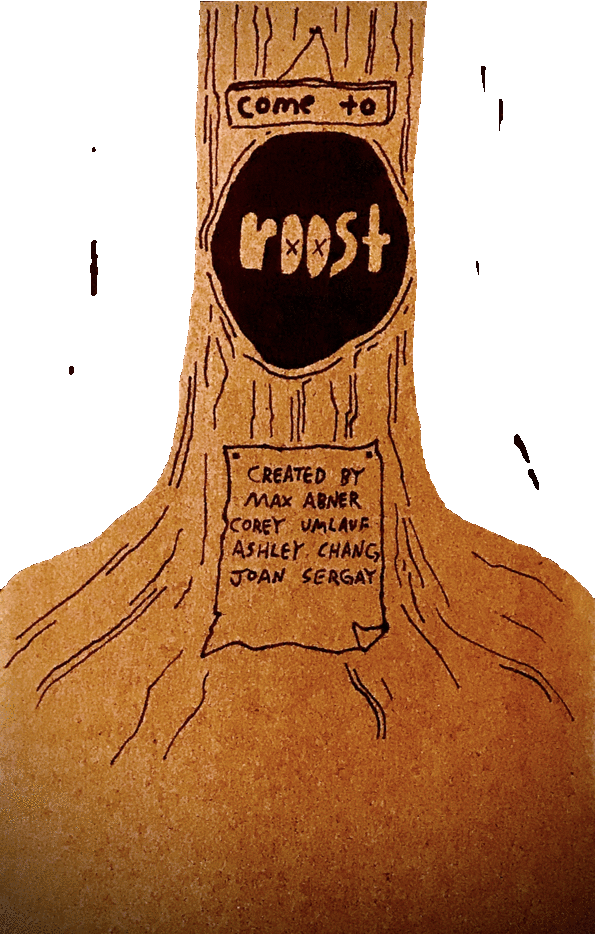 come to
roost
CREATED BY
MAX ABNER
COREY UMLAUF
ASHLEY CHANG,
JOAN SERGAY